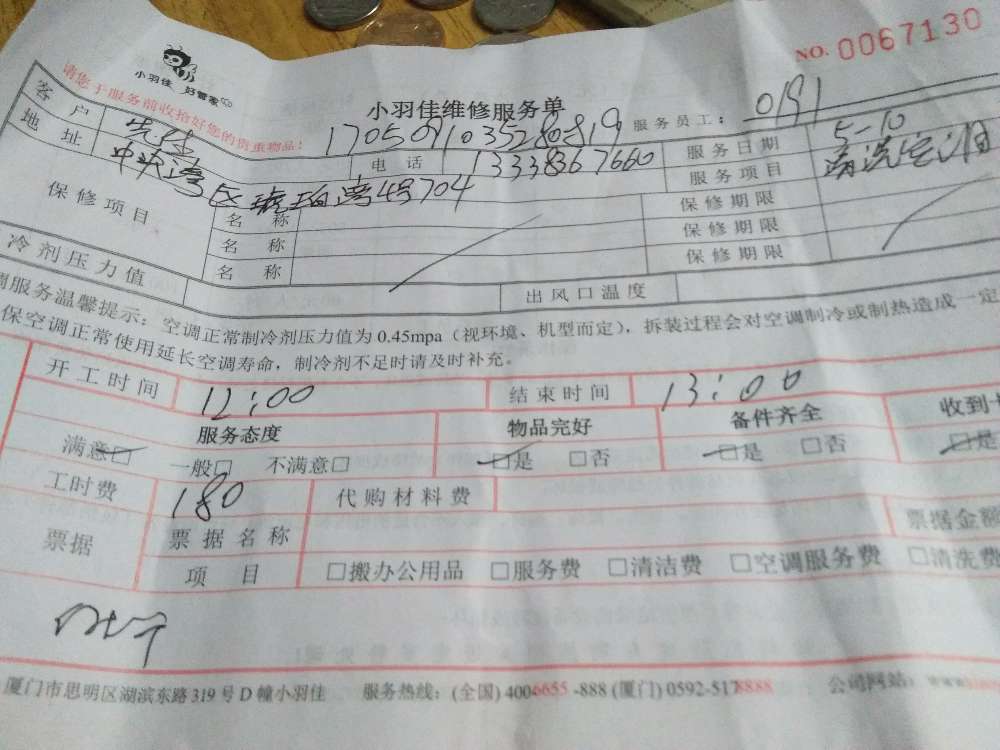 NO. 0067130
小羽佳 好管家
请您于服务前收拾好您的贵重物品!
小羽佳维修服务单
1705091035280819
服务员工: 0191
客户 先生 电话 13338367660 服务日期 5-10
地址 中央湾区琥珀湾4号704 服务项目 清洗空调
保修项目 名称 保修期限
名称 保修期限
名称 保修期限
冷剂压力值 出风口温度
调服务温馨提示: 空调正常制冷剂压力值为 0.45mpa (视环境、机型而定), 拆装过程会对空调制冷或制热造成一定
保空调正常使用延长空调寿命, 制冷剂不足时请及时补充。
开工时间 12:00 结束时间 13:00
服务态度 物品完好 备件齐全 收到
满意□ 一般□ 不满意□ □是 □否 □是 □否 □是
工时费 180 代购材料费
票据 票据名称 票据金额
项目 □搬办公用品 □服务费 □清洁费 □空调服务费 □清洗费
厦门市思明区湖滨东路 319 号 D 幢小羽佳 服务热线: (全国) 4006655-888 (厦门) 0592-5178888 公司网站: www